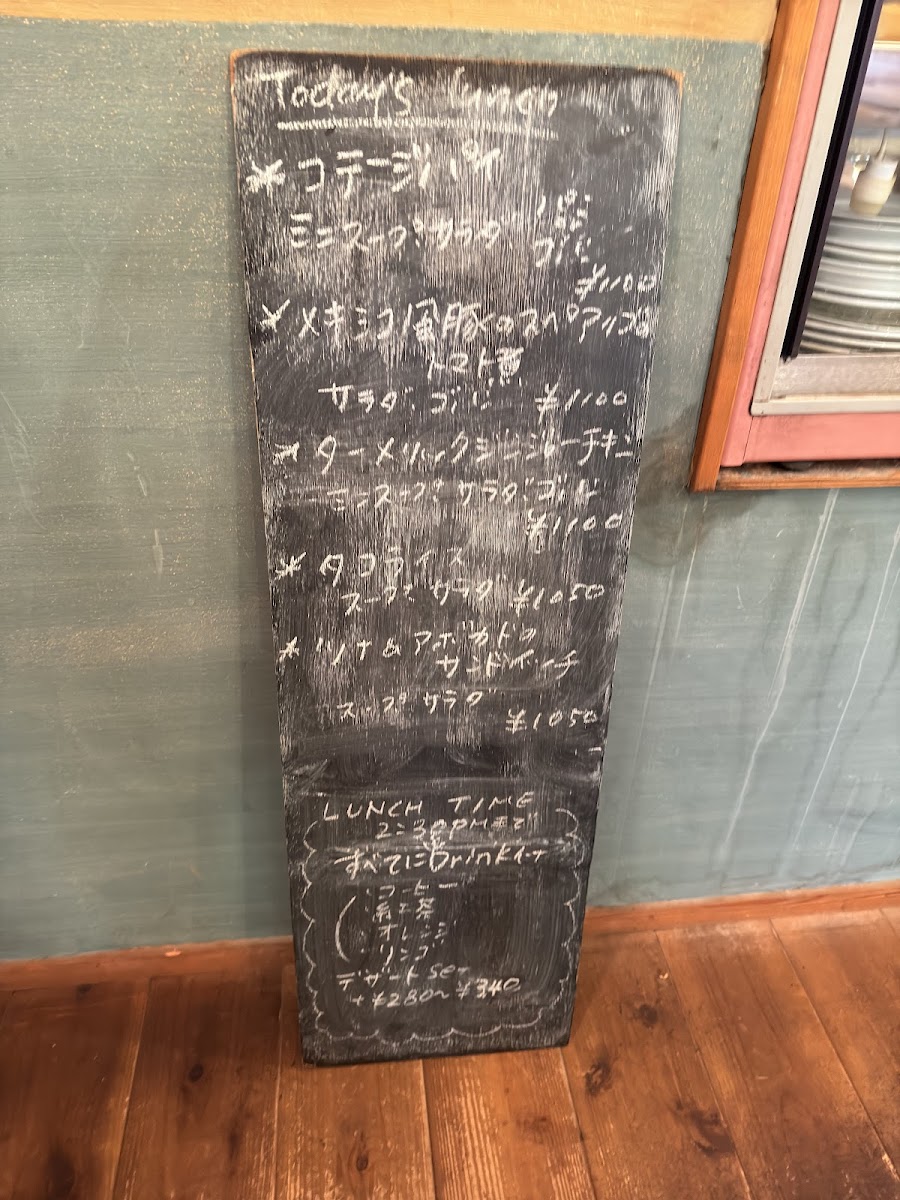 Today's Lunch
* コテージパイ
ミニスープ・サラダ
¥1100
* メキシコ風豚のスペアリブの
トマト
サラダ・ ¥1100
* ターメリックジンジャーチキン
ミニスープ・サラダ・
¥1100
* タコライス
スープ・サラダ ¥1050
* ツナ&アボカドの
サンドイッチ
スープ サラダ
¥1050
LUNCH TIME
2:30PMまで
すべてにDrink付
コーヒー
紅茶
オレンジ
リンゴ
デザート set
+¥280~¥340